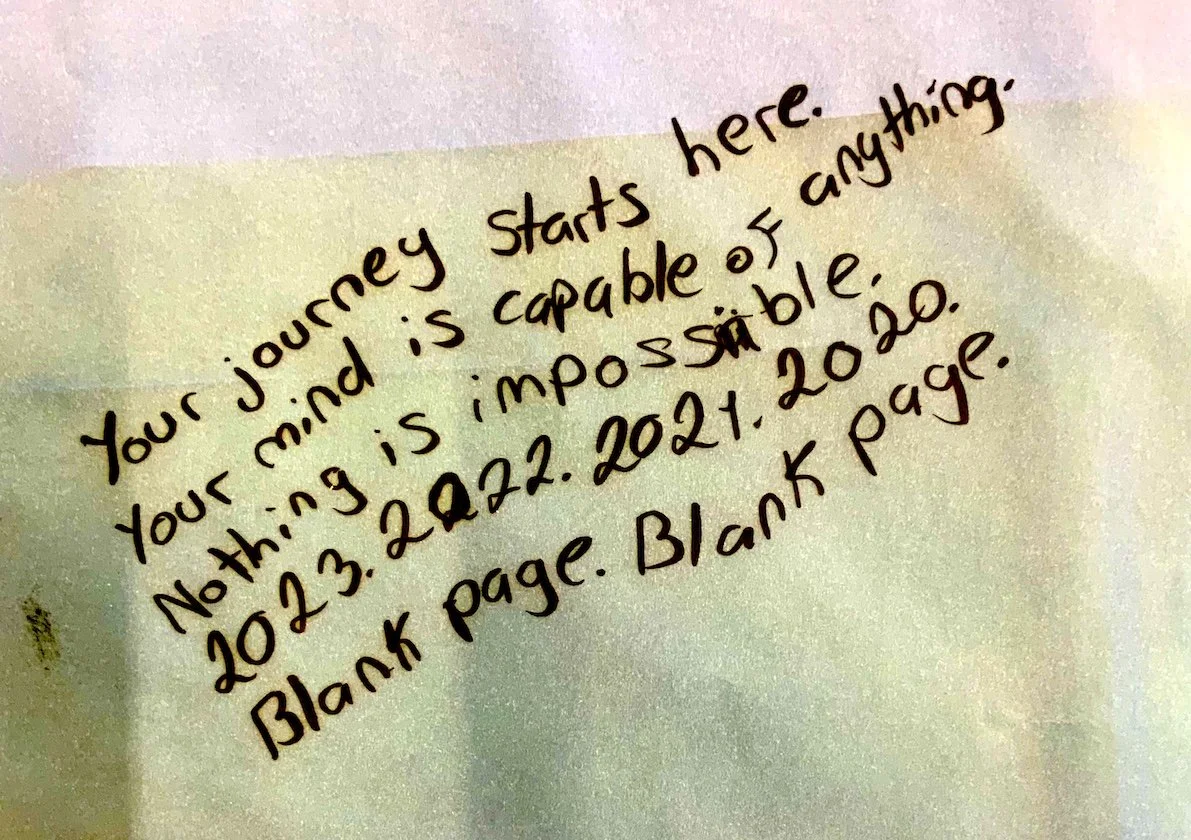 Your journey starts here.
Your mind is capable of anything.
Nothing is impossible.
2023. 2022. 2021. 2020.
Blank page. Blank page.